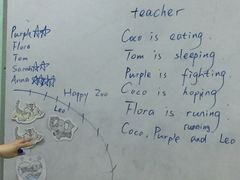 teacher
Purple
Flora
Tom
Sarah
Anna
Happy Zoo
Leo
Coco is eating.
Tom is sleeping
Purple is fighting.
Coco is hoping
Flora is runing
running
Coco, Purple and Leo